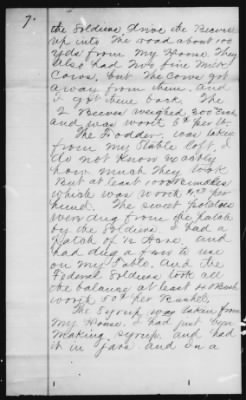 7.
the Soldiers drove the Beeves
up into The road about 100
Yds from My Home They
Also had two fine Milk
Cows, but The Cows got
away from them. and
I got them back. The
2 Beeves weighed 300 Each
and was worth 5¢ per lb.
The Fodder was taken
from my Stable loft, I
do not Know
how much They took
But at least 1000 Bundles
which was worth per
hund. The sweet potatoes
were dug from the patch
by the Soldiers. I had a
Patch of ½ Acre and
had dug a few to use
on My Table. And the
Federal Soldiers took all
the balance at least 40 Bush
worth 50¢ per Bushel.
The Syrup was taken from
My Home. I had just been
Making syrup, and had
it in Jars and on a